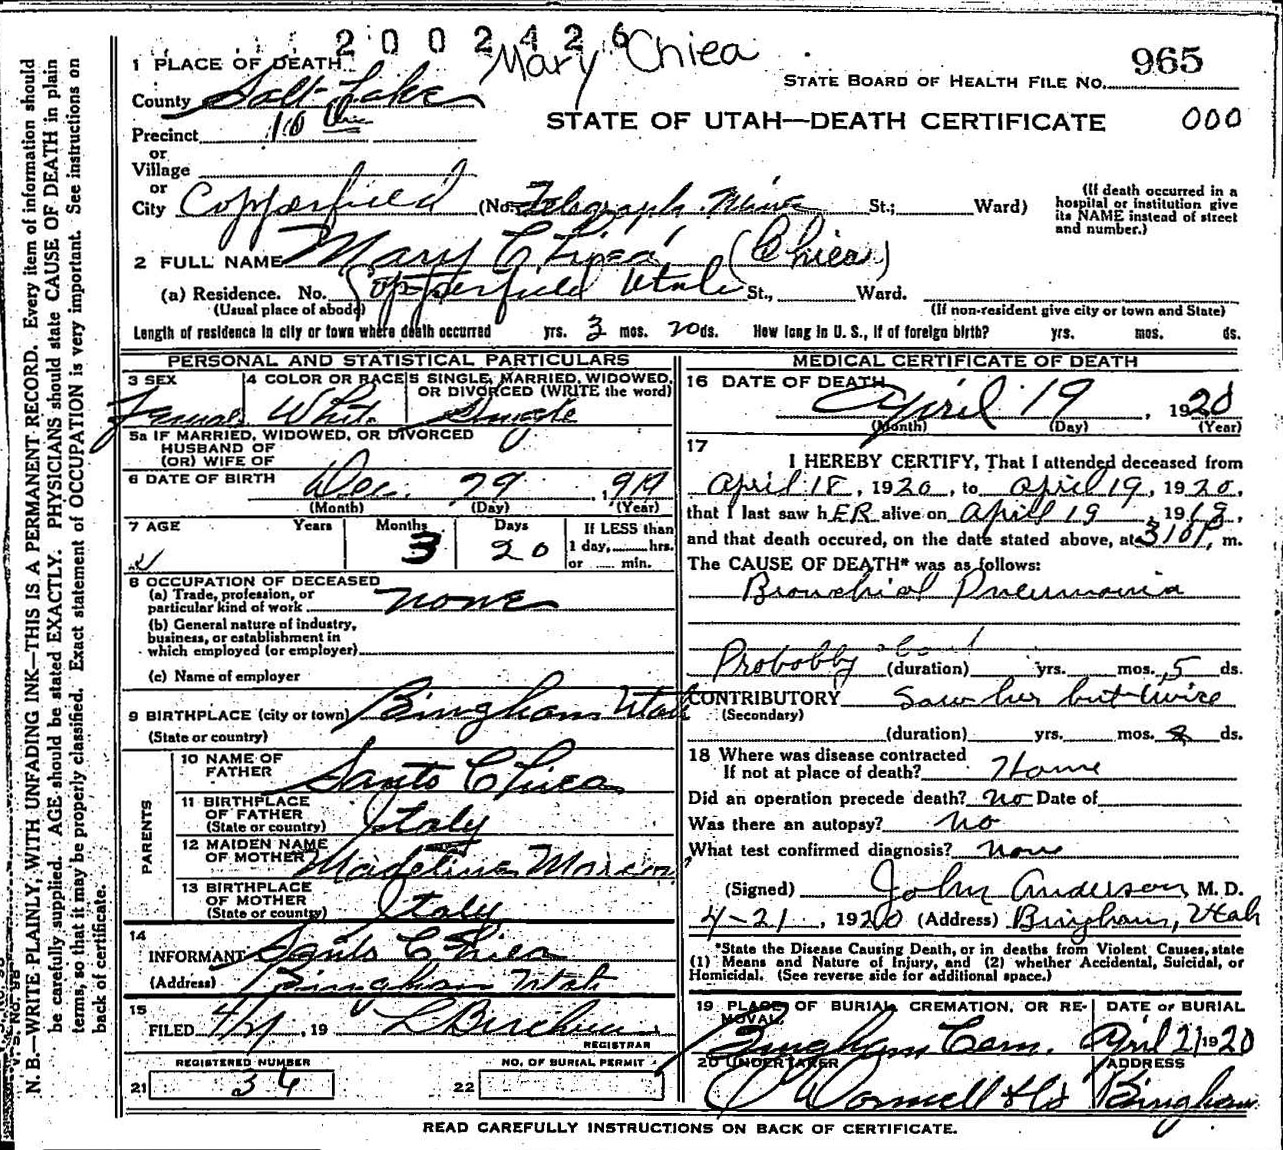 2002426
Mary Chiea
1 PLACE OF DEATH
STATE BOARD OF HEALTH FILE NO. 965
County Salt Lake
STATE OF UTAH—DEATH CERTIFICATE 000
Precinct
or
Village
or
City Copperfield (No. Telegraph Mine St.; Ward)
(If death occurred in a hospital or institution give its NAME instead of street and number.)
2 FULL NAME Mary Chiea (Chiea)
(a) Residence. No. Copperfield Utah St., Ward.
(Usual place of abode) (If non-resident give city or town and State)
Length of residence in city or town where death occurred yrs. 3 mos. 20 ds. How long in U. S., if of foreign birth? yrs. mos. ds.
PERSONAL AND STATISTICAL PARTICULARS
3 SEX Female
4 COLOR OR RACE White
5 SINGLE, MARRIED, WIDOWED, OR DIVORCED (WRITE the word) Single
5a IF MARRIED, WIDOWED, OR DIVORCED
HUSBAND OF
(OR) WIFE OF
6 DATE OF BIRTH Dec. 29, 1919
(Month) (Day) (Year)
7 AGE Years Months 3 Days 20 If LESS than
1 day, hrs.
or min.
8 OCCUPATION OF DECEASED
(a) Trade, profession, or
particular kind of work none
(b) General nature of industry,
business, or establishment in
which employed (or employer)
(c) Name of employer
9 BIRTHPLACE (city or town) Bingham Utah
(State or country)
PARENTS
10 NAME OF FATHER Santo Chiea
11 BIRTHPLACE OF FATHER (State or country) Italy
12 MAIDEN NAME OF MOTHER Madeline
13 BIRTHPLACE OF MOTHER (State or country) Italy
14
INFORMANT Santo Chiea
(Address) Bingham Utah
15
FILED 4/21, 19
REGISTRAR
REGISTERED NUMBER NO. OF BURIAL PERMIT
21 34 22
MEDICAL CERTIFICATE OF DEATH
16 DATE OF DEATH April 19, 1920
(Month) (Day) (Year)
17
I HEREBY CERTIFY, That I attended deceased from
April 18, 1920, to April 19, 1920,
that I last saw hER alive on April 19, 19
and that death occured, on the date stated above, at 310P. m.
The CAUSE OF DEATH* was as follows:
Bronchial Pneumonia
Probobly about (duration) yrs. mos. 5 ds.
CONTRIBUTORY Saw her but twice
(Secondary)
(duration) yrs. mos. ds.
18 Where was disease contracted
If not at place of death? Home
Did an operation precede death? No Date of
Was there an autopsy? No
What test confirmed diagnosis? None
(Signed) John Anderson, M. D.
4-21, 1920 (Address) Bingham, Utah
*State the Disease Causing Death, or in deaths from Violent Causes, state
(1) Means and Nature of Injury, and (2) whether Accidental, Suicidal, or
Homicidal. (See reverse side for additional space.)
19 PLACE OF BURIAL CREMATION, OR REMOVAL DATE OF BURIAL
Bingham Cem. April 21 1920
20 UNDERTAKER ADDRESS
Bingham
READ CAREFULLY INSTRUCTIONS ON BACK OF CERTIFICATE.
N. B.—WRITE PLAINLY, WITH UNFADING INK—THIS IS A PERMANENT RECORD. Every item of information should
be carefully supplied. AGE should be stated EXACTLY. PHYSICIANS should state CAUSE OF DEATH in plain
terms, so that it may be properly classified. Exact statement of OCCUPATION is very important. See instructions on
back of certificate.